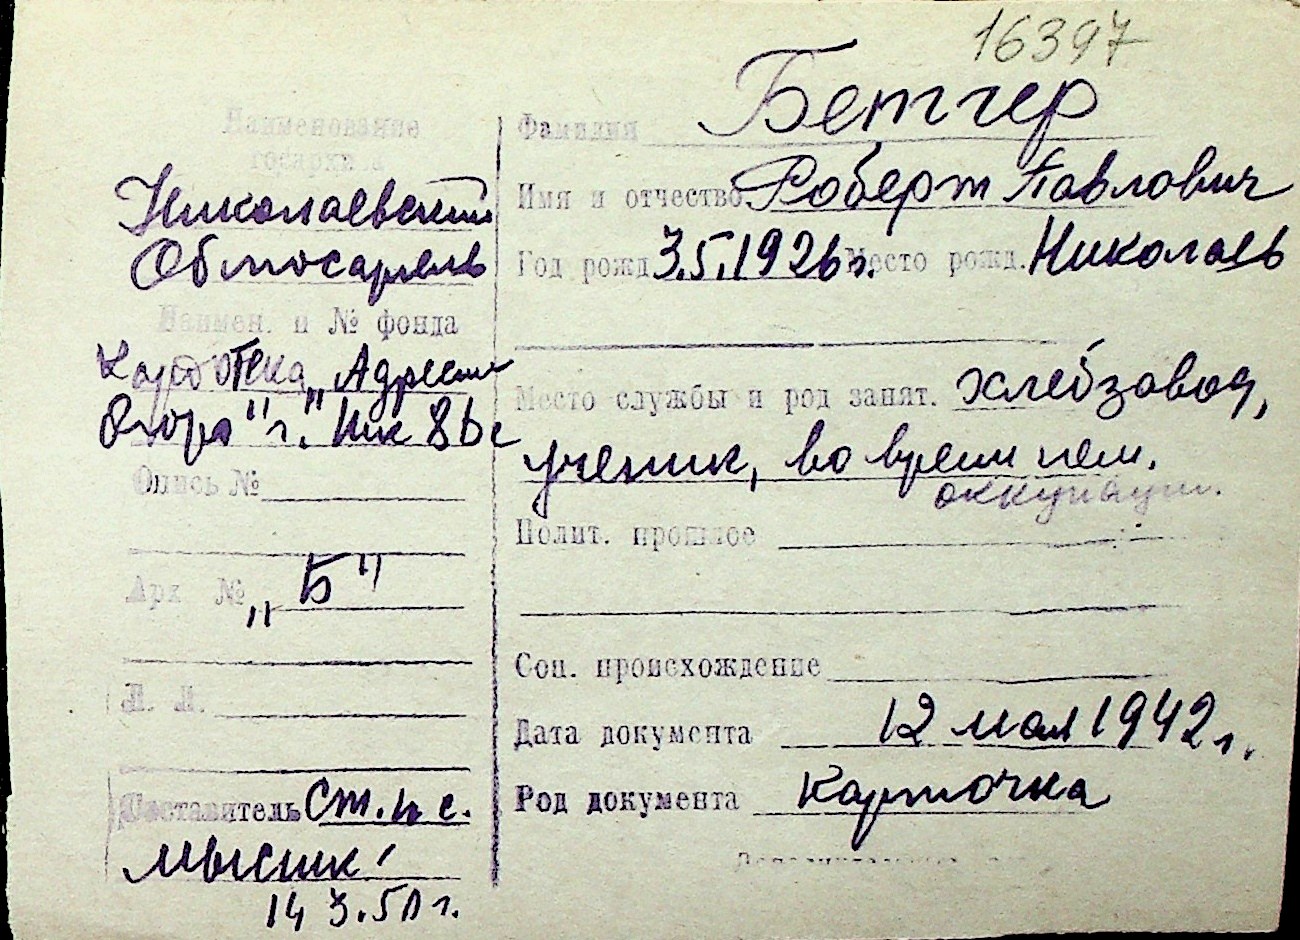 16397
Наименование
госархива
Николаевский
Облгосархив
Наимен. и № фонда
Картотека „Адресн
бюро" г. Ник
Опись №
Арх №
„Б"
Л. Л.
Составитель Ст. н. с.
Мысик
14 3.50 г.
Фамилия Бетчер
Имя и отчество Роберт Павлович
Год рожд. 3.5.1926 г. Место рожд. Николаев
Место службы и род занят. хлебзавод,
ученик, во время нем.
оккупации.
Полит. прошлое
Соц. происхождение
Дата документа 12 мая 1942 г.
Род документа карточка